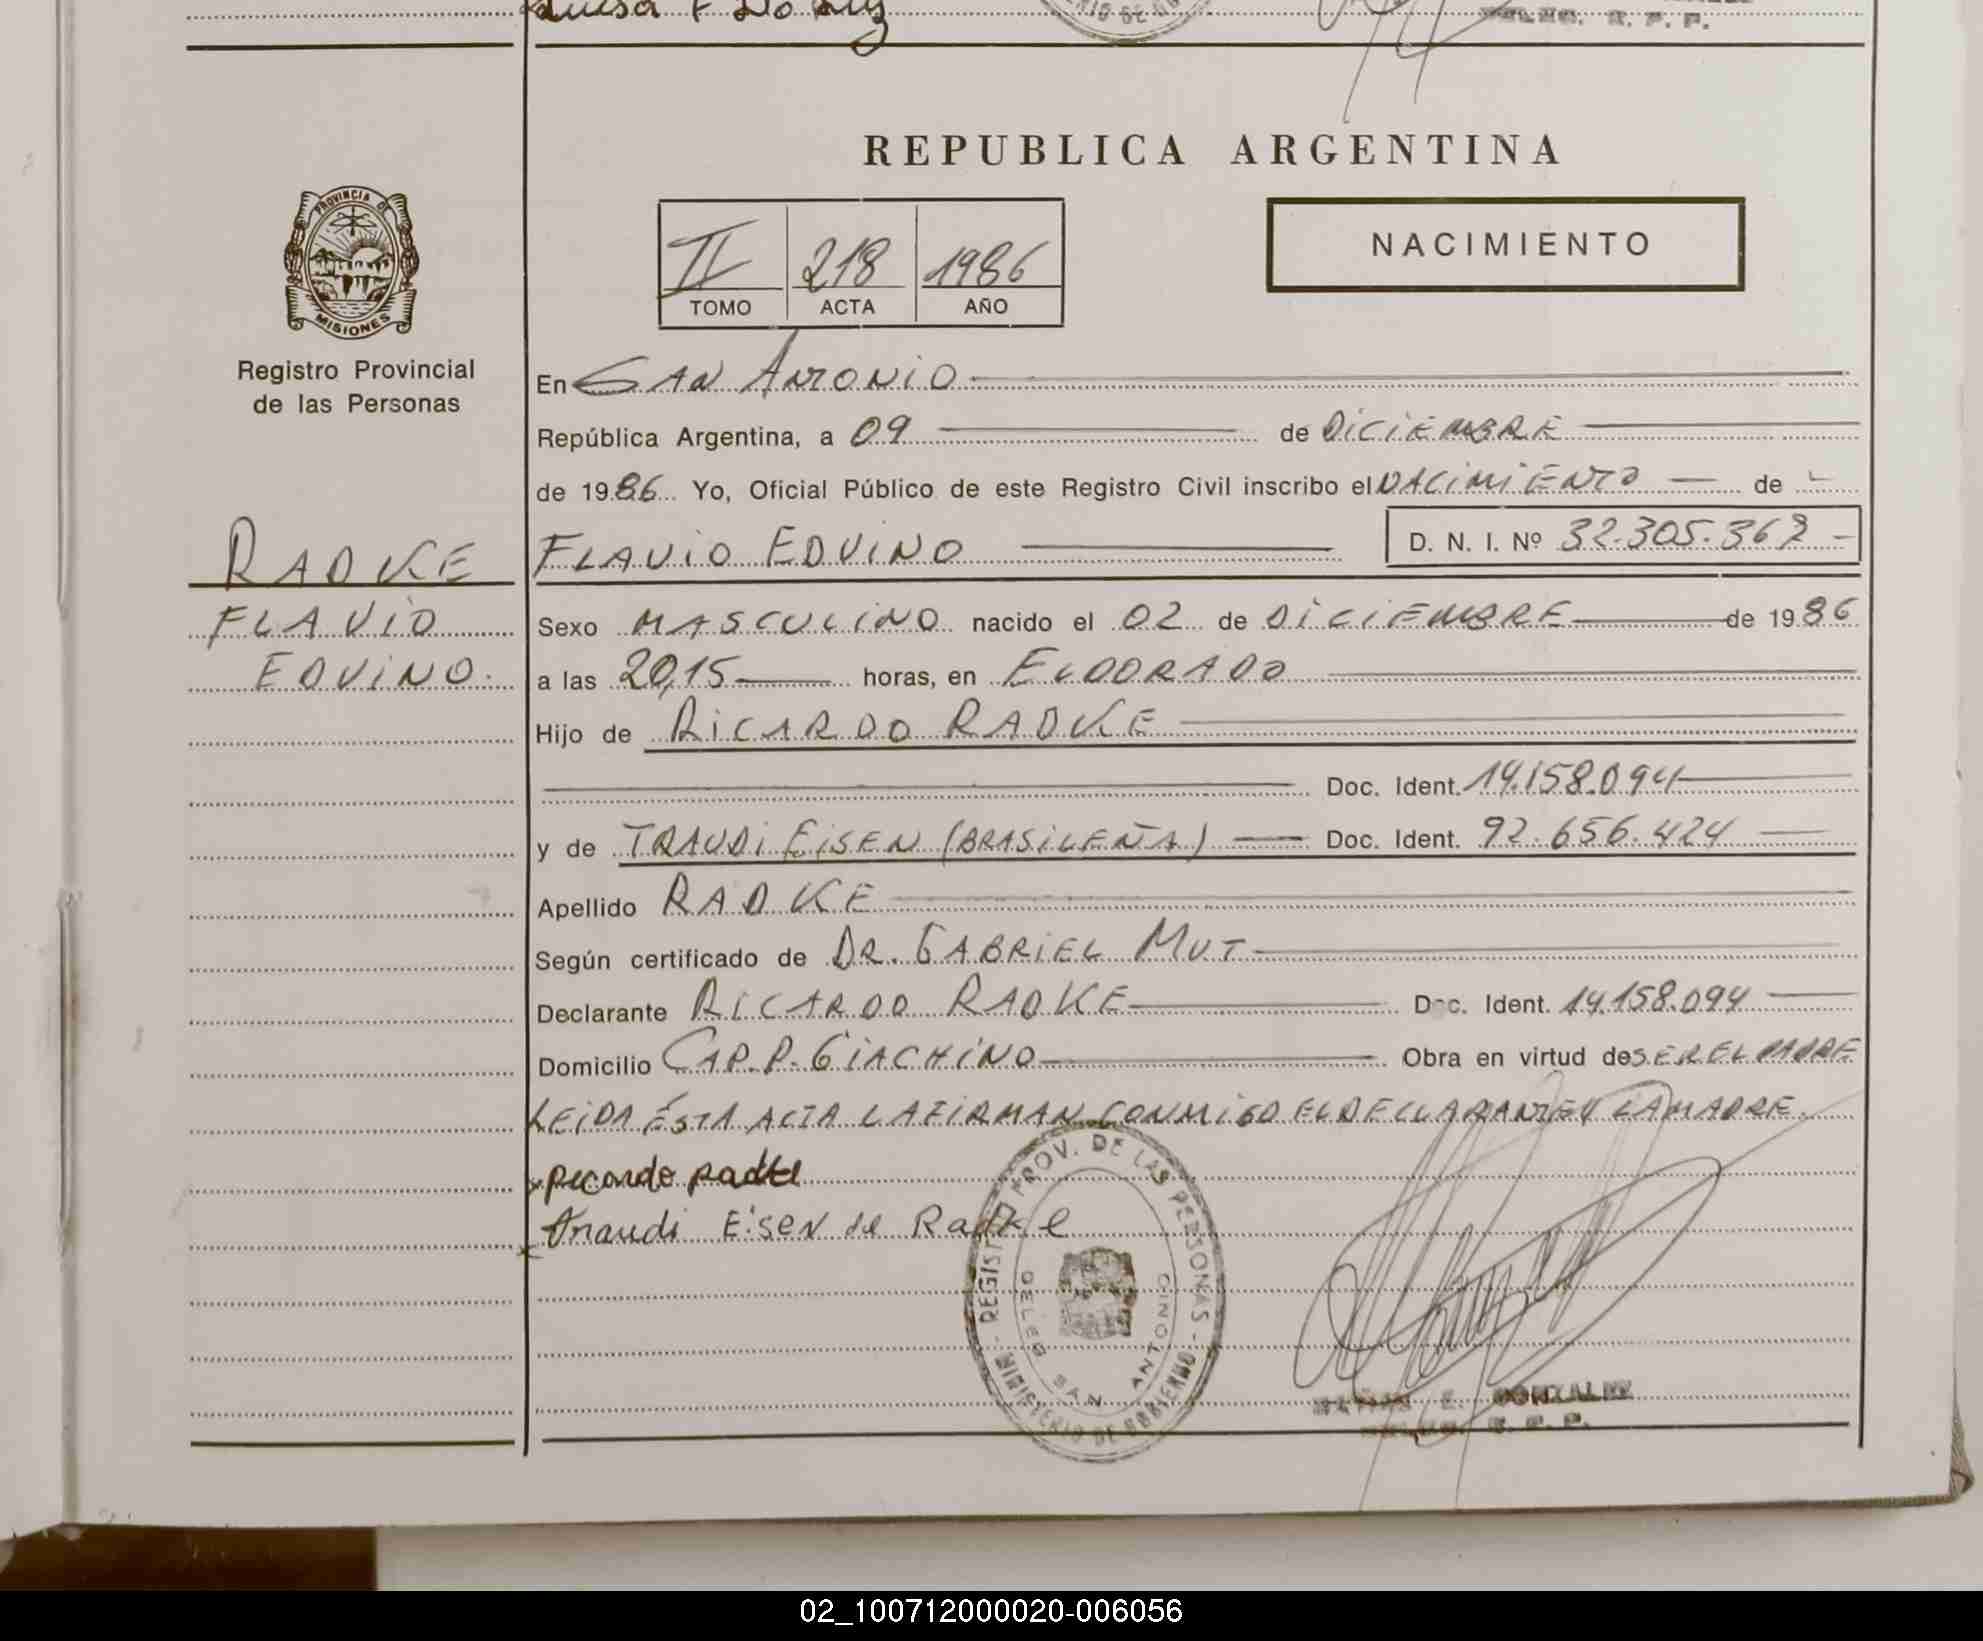 Luisa F Do Luz
R. P. P.
REPUBLICA ARGENTINA
PROVINCIA DE
MISIONES
Registro Provincial
de las Personas
II 218 1986
TOMO ACTA AÑO
NACIMIENTO
En SAN ANTONIO
República Argentina, a 09 de DICIEMBRE
de 1986 Yo, Oficial Público de este Registro Civil inscribo el NACIMIENTO de
RADKE
FLAVIO EDVINO D. N. I. Nº 32.305.367
FLAVIO
EDVINO.
Sexo MASCULINO nacido el 02 de DICIEMBRE de 1986
a las 20,15 horas, en ELDORADO
Hijo de RICARDO RADKE
Doc. Ident. 14.158.094
y de TRAUDI EISEN (BRASILEÑA) Doc. Ident. 92.656.424
Apellido RADKE
Según certificado de DR. GABRIEL MUT
Declarante RICARDO RADKE Doc. Ident. 14.158.094
Domicilio CAP. P. GIACHINO Obra en virtud de SER EL PADRE
LEIDA ÉSTA ACTA LA FIRMAN CONMIGO EL DECLARANTE Y LA MADRE.
x Ricardo Radke
x Traudi Eisen de Radke
REGIST PROV. DE LAS PERSONAS - MINISTERIO DE GOBIERNO -
DELEG SAN ANTONIO
E. GONZALEZ
R. P. P.
02_100712000020-006056